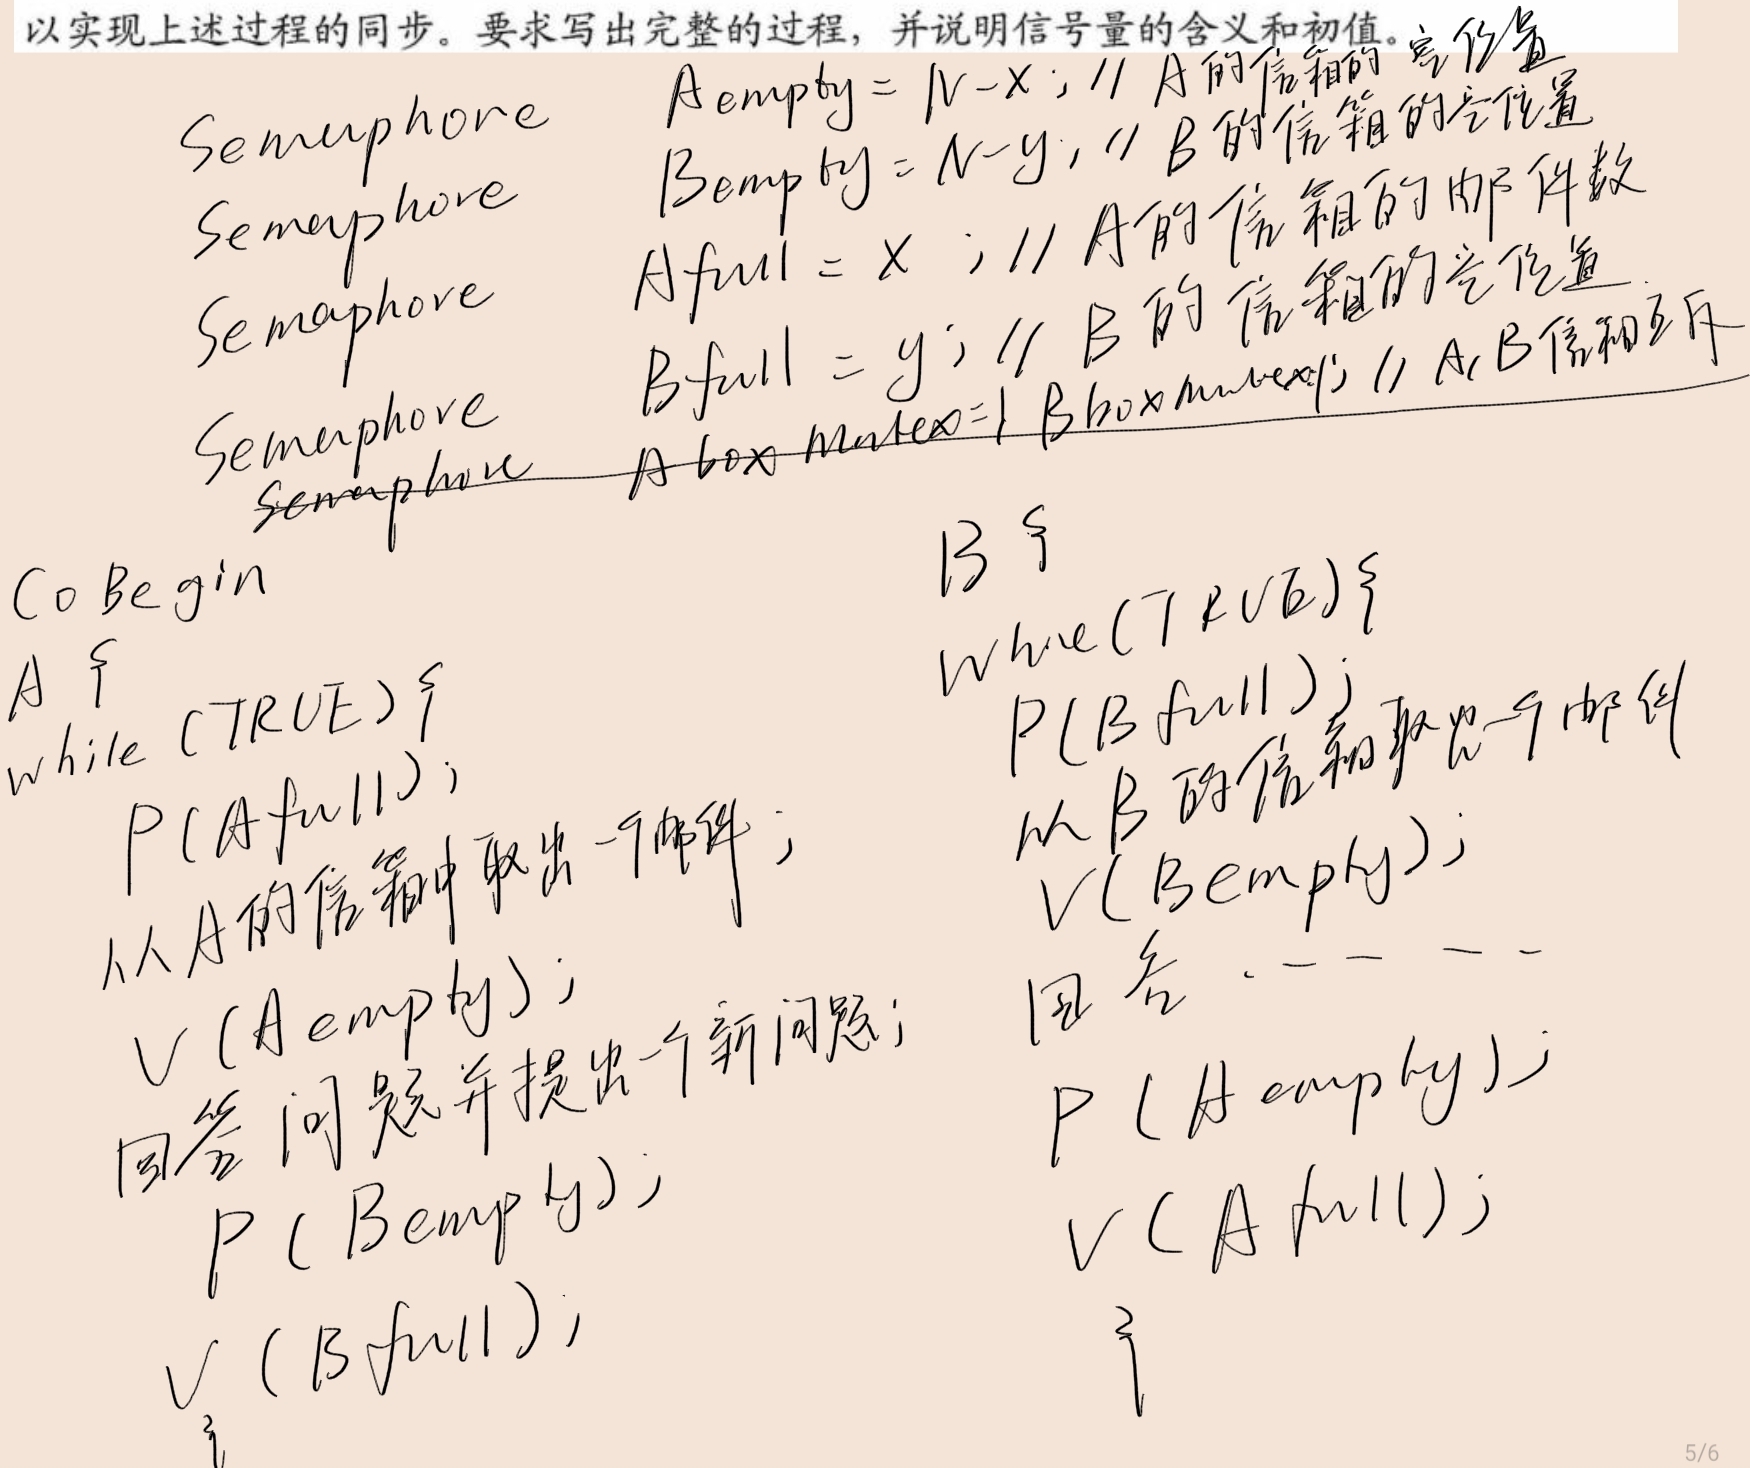 以实现上述过程的同步。要求写出完整的过程，并说明信号量的含义和初值。
Semaphore Aempty = N-x; // A的信箱的空位置
Semaphore Bempty = N-y; // B的信箱的空位置
Semaphore Afull = x; // A的信箱的邮件数
Semaphore Bfull = y; // B的信箱的空位置
Semaphore Aboxmutex=1 Bboxmutex; // A,B信箱互斥
CoBegin
A {
while (TRUE) {
P(Afull);
从A的信箱中取出一个邮件;
V(Aempty);
回答问题并提出一个新问题;
P(Bempty);
V(Bfull);
}
B {
while (TRUE) {
P(Bfull);
从B的信箱取出一个邮件
V(Bempty);
回答 ·----
P(Aempty);
V(Afull);
}
5/6